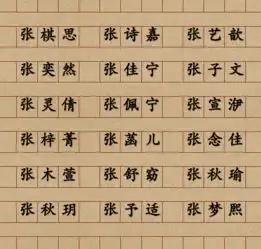 张棋思 张诗嘉 张艺歆
张奕然 张佳宁 张子文
张灵倩 张佩宁 张宣洢
张梓菁 张菡儿 张念佳
张木萱 张舒窈 张秋瑜
张秋玥 张予适 张梦熙